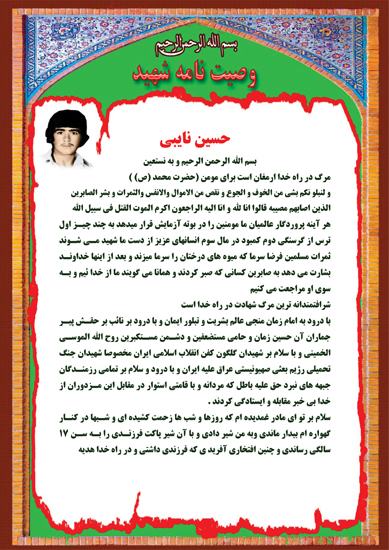 بسم الله الرحمن الرحیم
وصیت نامه شهید
حسین نایبی
بسم الله الرحمن الرحیم و به نستعین
مرگ در راه خدا ارمغان است برای مومن (حضرت محمد (ص) )
و لنبلو نکم بشی من الخوف و الجوع و نقص من الاموال والانفس والثمرات و بشر الصابرین
الذین اصابهم مصیبه قالوا انا لله و انا الیه الراجعون اکرم الموت القتل فی سبیل الله
هر آینه پروردگار عالمیان ما مومنین را در بوته آزمایش قرار میدهد به چند چیـز اول
ترس از گرسنگی دوم کمبود در مال سوم انسانهای عزیز از دست ما شهید مـی شـوند
ثمرات مسلمین فرضا سرما که میوه های درختان را سرما میزند و بعد از اینها خداونـد
بشارت می دهد به صابرین کسانی که صبر کردند و همانا می گویند ما از خدا ئیم و بـه
سوی او مراجعت می کنیم
شرافتمندانه ترین مرگ شهادت در راه خدا است
با درود به امام زمان منجی عالم بشریت و تبلور ایمان و با درود بر نائب بر حقـش پیـر
جماران آن حسین زمان و حامی مستضعفین و دشـمن مسـتکبرین روح الله الموسـی
الخمینی و با سلام بر شهیدان گلگون کفن انقلاب اسلامی ایران مخصوصا شهیدان جنگ
تحمیلی رژیم بعثی صهیونیستی عراق علیه ایران و با درود و سلام بر تمامی رزمنـدگان
جبهه های نبرد حق علیه باطل که مردانه و با قامتی استوار در مقابل این مـزدوران از
خدا بی خبر مقابله و ایستادگی کردند .
سلام بر تو ای مادر غمدیده ام که روزها و شب ها زحمت کشیده ای و شـبها در کنـار
گهواره ام بیدار ماندی وبه من شیر دادی و با آن شیر پاکت فرزنـدی را بـه سـن ۱۷
سالگی رساندی و چنین افتخاری آفریدی که فرزندی داشتی و در راه خدا هدیه